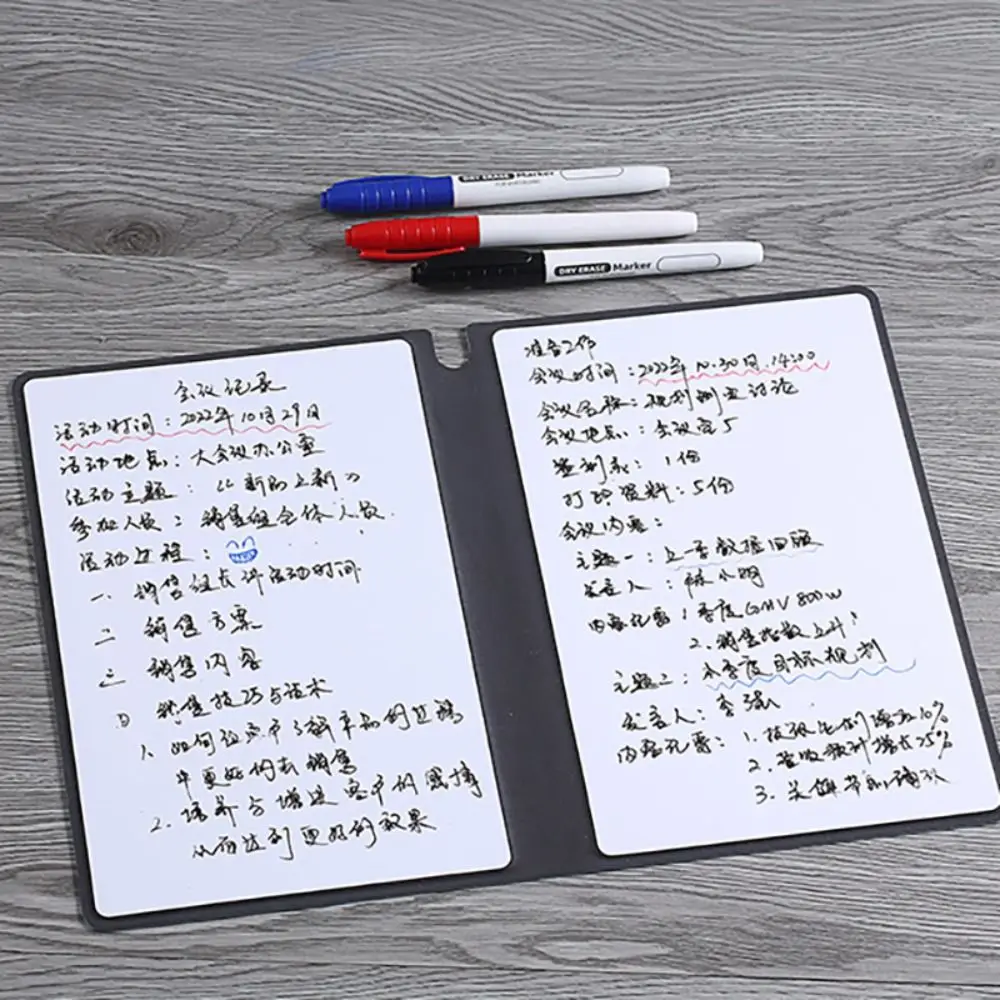 DRY ERASE Marker
DRY ERASE Marker
会议记录
活动时间：2022年10月29日
活动地点：大会议办公室
活动主题：“新品上新”
参加人员：销售组全体人员
活动过程：
一、销售组长讲活动时间
二 销售方案
三 销售内容
四 销售技巧与话术
1. 如何让客户了解产品的过程
中更好的去销售
2. 培养与增进客户的感情
从而达到更好的效果
准备工作
会议时间：2022年10.30日.14:00
会议名称：规划制定讨论
会议地点：会议室5
签到表：1份
打印资料：5份
会议内容：
主题一：上一季数据回顾
发言人：陈小明
内容记要：1.季度GMV 800w
2.销售指数上升？
主题二：本季度目标规划
发言人：李强
内容记要：1. 比例增加10%
2. 预计增长25%
3. 关键节点